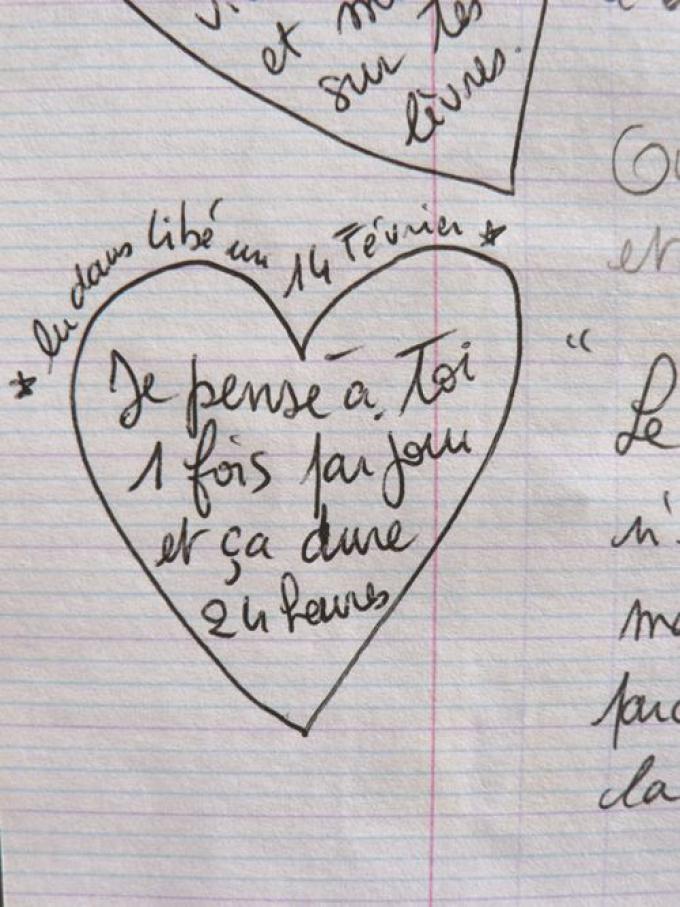 et m
sur tes
lèvres.
* lu dans Libé un 14 Février *
Je pense à Toi
1 fois par jour
et ça dure
24 heures
et
"
Le
n'
me
parc
la